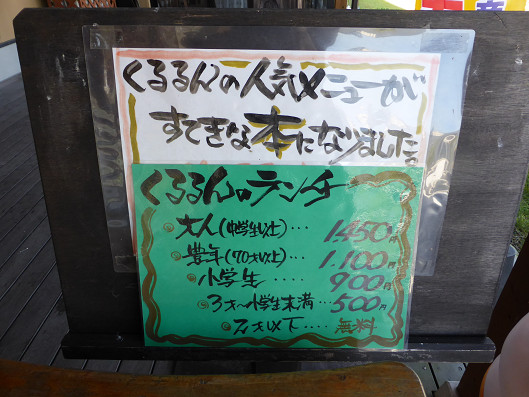 くるるんの人気メニューが
すてきな本になりました。
くるるんのランチ
大人(中学生以上)・・・ 1,450円
豊年(70才以上)・・・・ 1,100円
小学生・・・・ 900円
3才〜小学生未満・・・・ 500円
2才以下・・・・ 無料